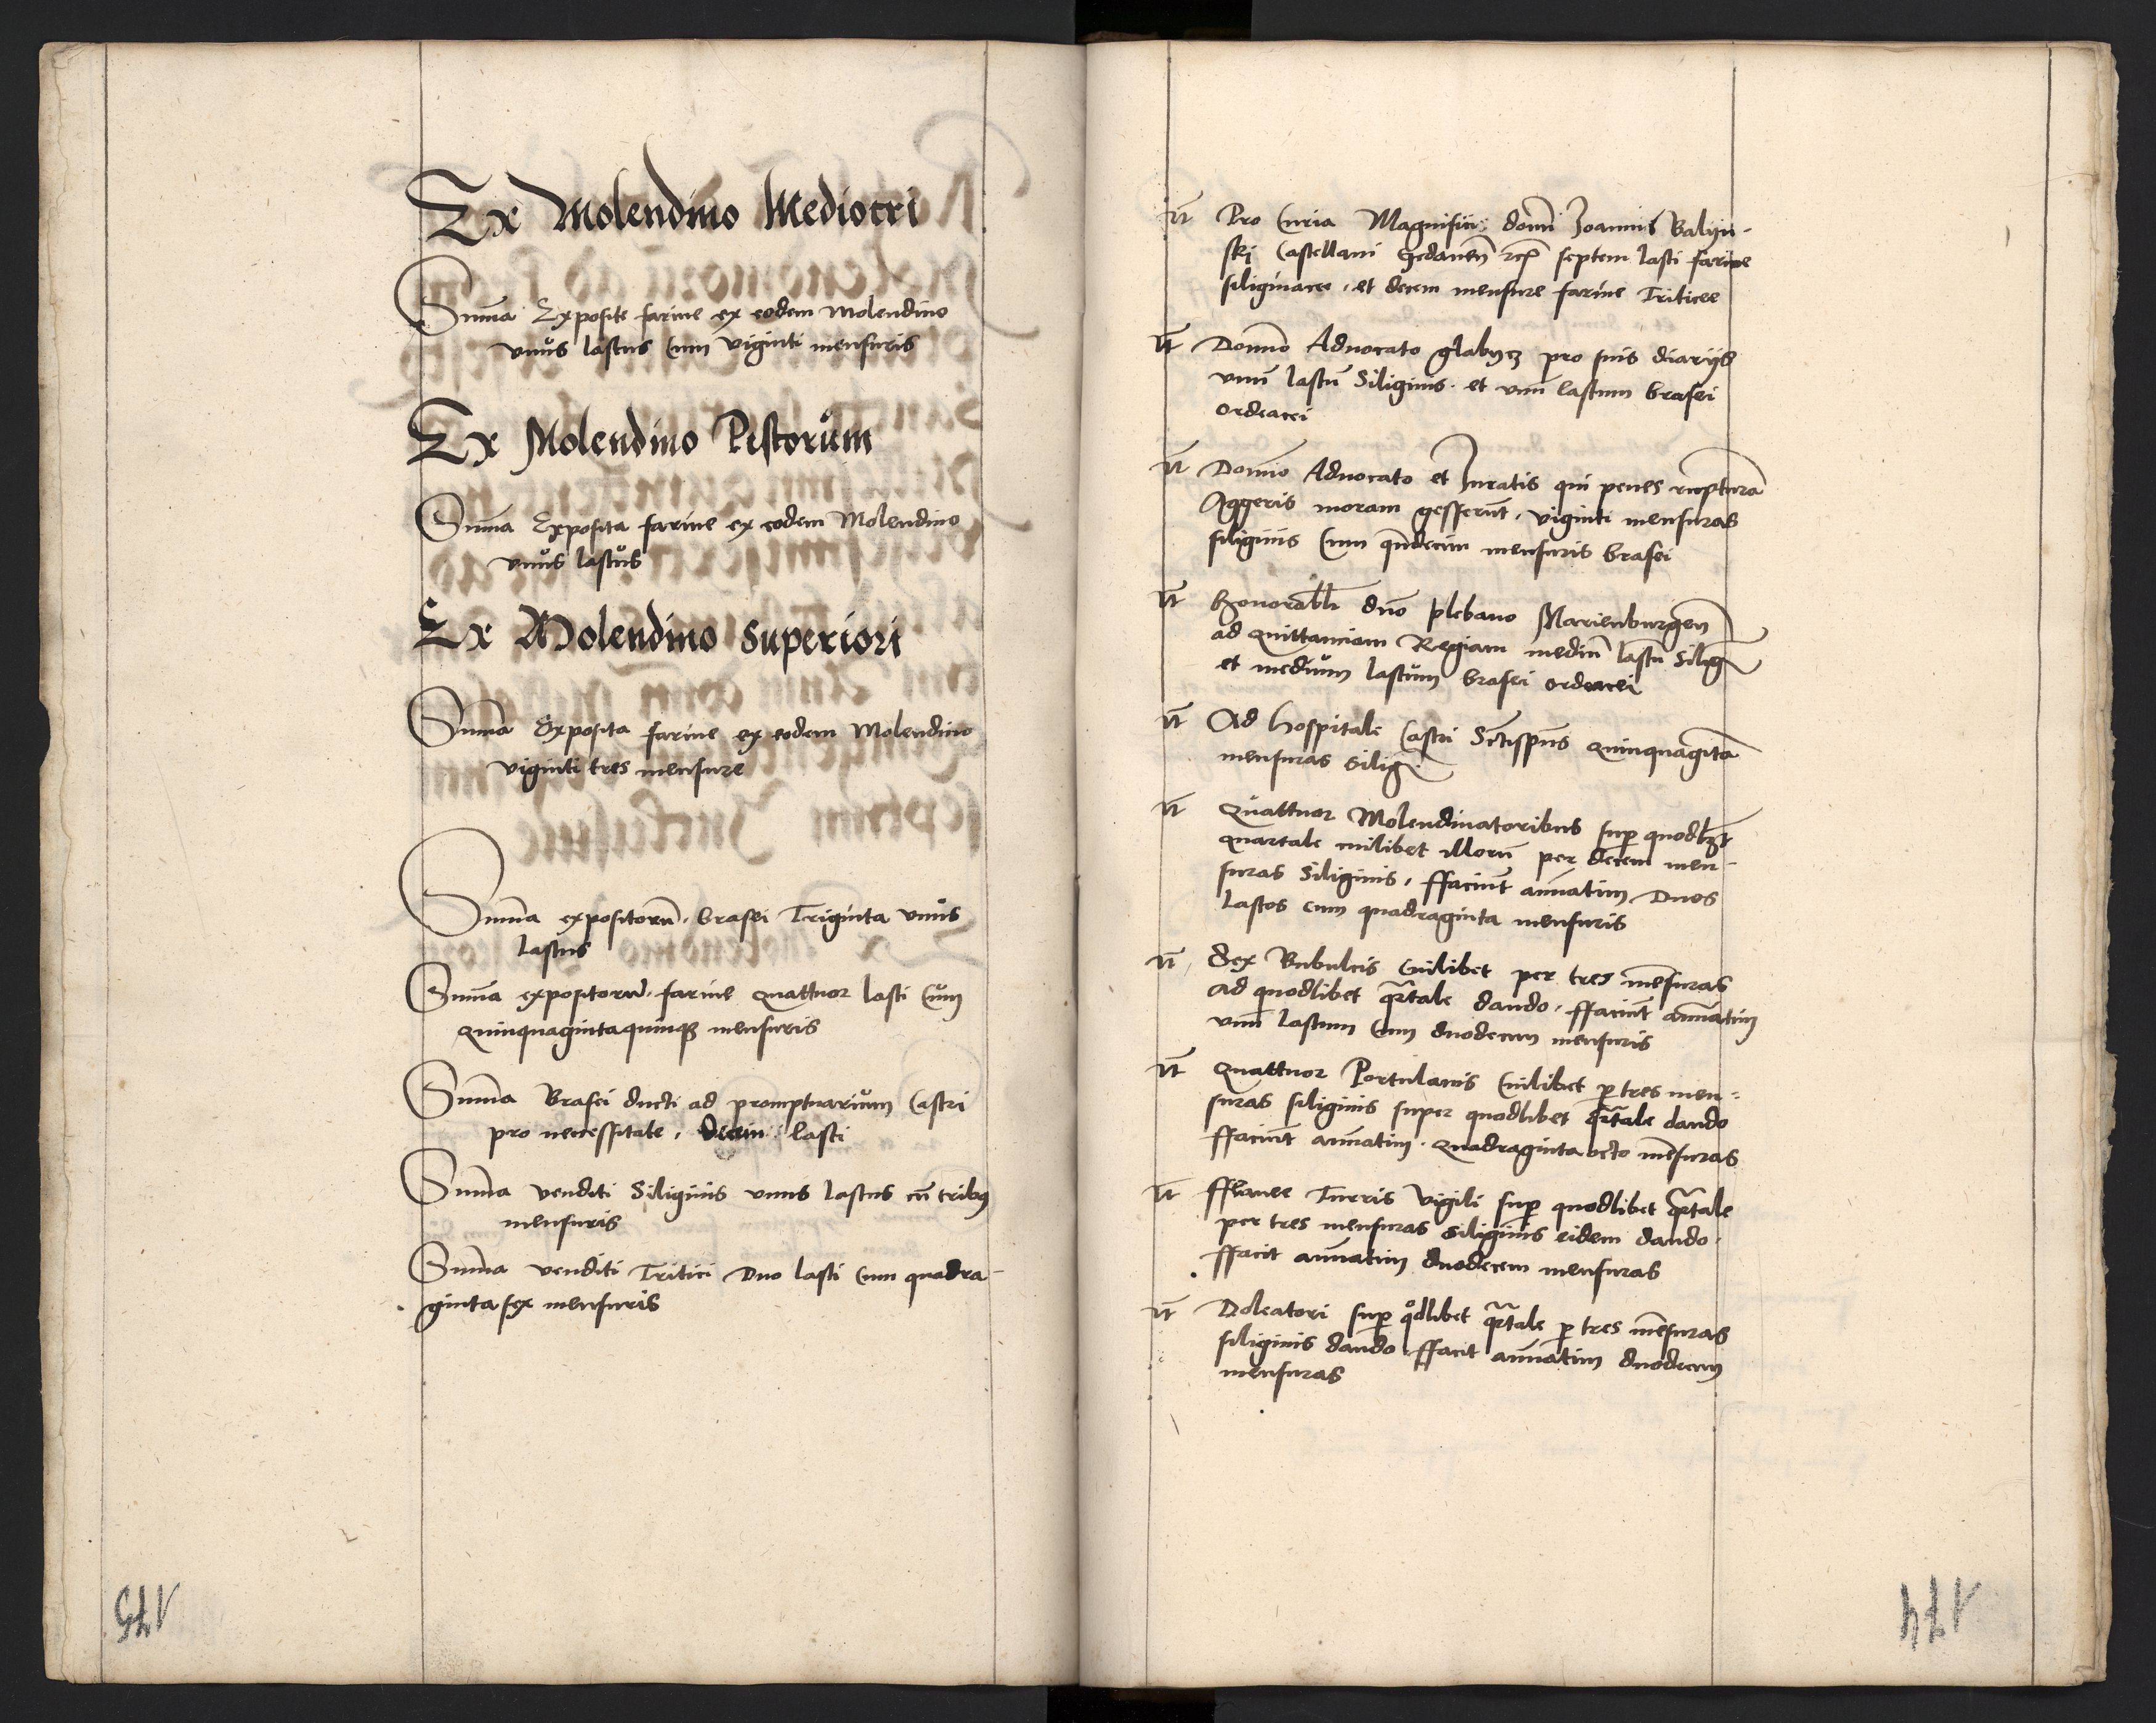 Ex Molendino Mediocri
Summa Exposite farine ex eodem Molendino
vnus lastus Cum viginti mensuris
Ex Molendino Pistorum
Summa Exposita farine ex eodem Molendino
vnus lastus
Ex Molendino Superiori
Summa Exposita farine ex eodem Molendino
viginti tres mensure
Summa expositorū brasei Triginta vnus
lastus
Summa expositorum farine quattuor lasti Cum
quinquagintaquinqȝ mensuris
Summa Brasei ducti ad promptuarium Castri
pro necessitate, decem lasti
Summa venditi Siliginis vnus lastus cū tribus
mensuris
Summa venditi Tritici Duo lasti Cum quadra-
ginta sex mensuris
175
It Pro Curia Magnifici domi Joannis Balijn-
skj Castellani Gedanen̄ septem lasti farine
siliginacee, et decem mensure farine Triticee
It Domino Aduocato glabycz pro suis diarijs
vnū lastū Siliginis et vnū lastum brasei
ordeacei
It Domino Aduocato et Juratis qui penes rupturā
Aggeris moram gesserūt, viginti mensuras
siliginis Cum qndecim mensuris brasei
It honorabli dno plebano Marienburgen̄
ad quittanciam Regiam mediū lastū Silig
et medium lastum brasei ordeacei
It Ad hospitale Castri Sctispūs quinquagīta
mensuras Silig
It Quattuor Molendinatoribus sup quodlȝt
quartale cuilibet illorū per decem men-
suras Siliginis, ffaciūt annuatim Duos
lastos cum quadraginta mensuris
It Sex Bubulcis Cuilibet per tres mēsuras
ad quodlibet qrtale dando, ffaciūt annuatim
vnū lastum Cum duodecim mensuris
It Quattuor Portulanis Cuilibet p tres men-
suras siliginis super quodlibet qrtale dando
ffaciūt annuatim quadraginta octo mēsuras
It Turris vigili sup quodlibet qrtale
per tres mensuras Siliginis eidem dando
ffacit annuatim duodecem mensuras
It Doleatori sup qodlibet qrtale p tres mēsuras
siliginis dando ffacit annuatim duodecim
mensuras
174